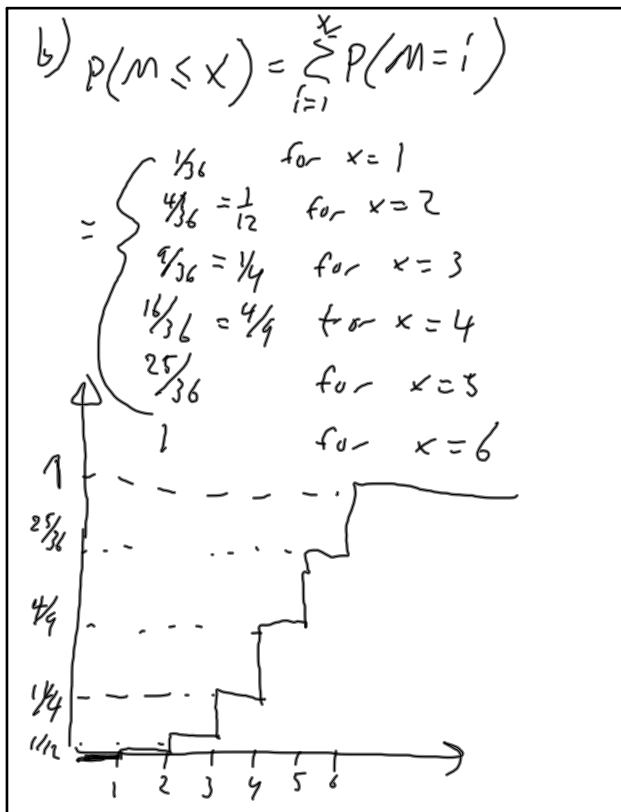 b) P(M ≤ x) = Σ_{i=1}^{x} P(M = i)
= { 1/36 for x = 1
4/36 = 1/12 for x = 2
9/36 = 1/4 for x = 3
16/36 = 4/9 for x = 4
25/36 for x = 5
1 for x = 6
1
25/36
4/9
1/4
1/12
1 2 3 4 5 6